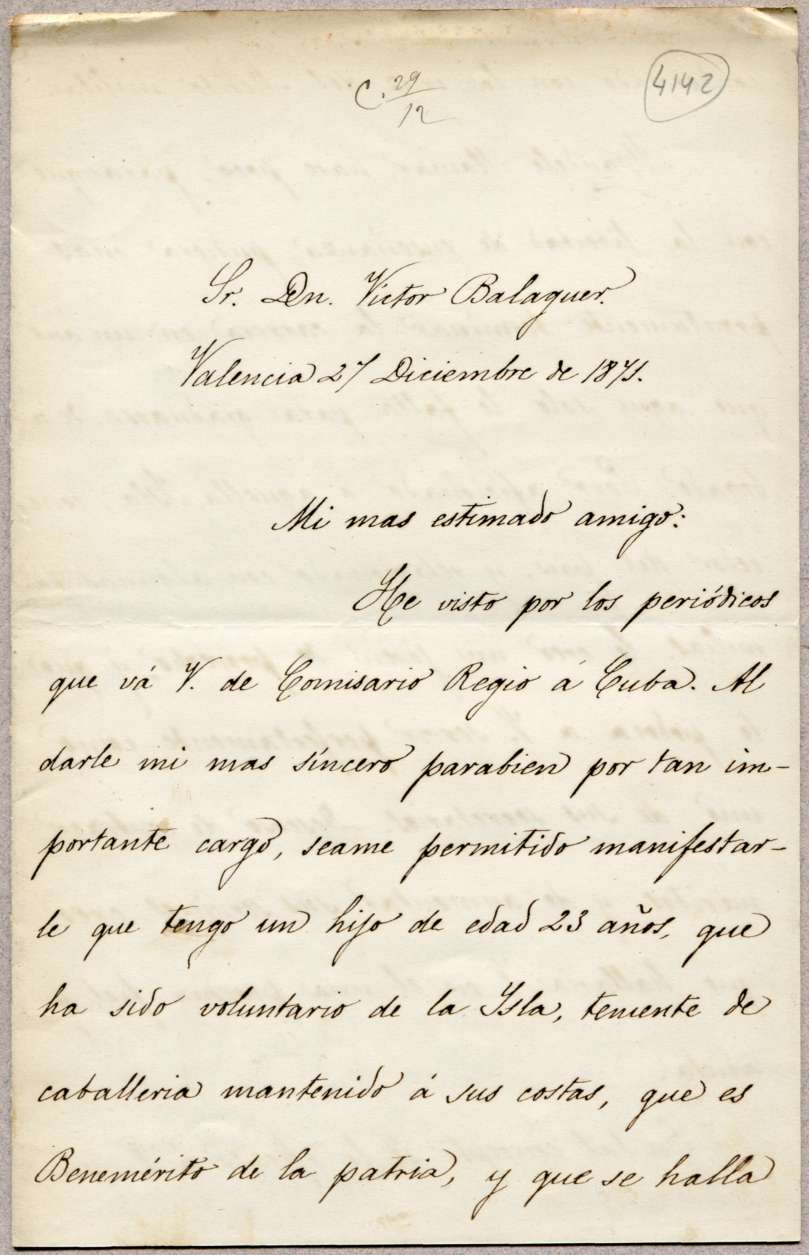 C. 29/12
4142
Sr. Dn. Víctor Balaguer.
Valencia 27 Diciembre de 1871.
Mi mas estimado amigo:
He visto por los periódicos
que vá V. de Comisario Regio á Cuba. Al
darle mi mas síncero parabien por tan im-
portante cargo, seame permitido manifestar-
le que tengo un hijo de edad 23 años, que
ha sido voluntario de la Ysla, teniente de
caballeria mantenido á sus costas, que es
Benemérito de la patria, y que se halla